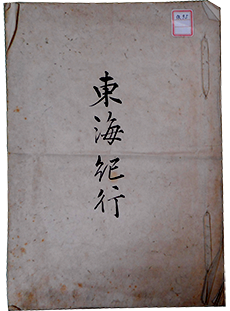 東海紀行